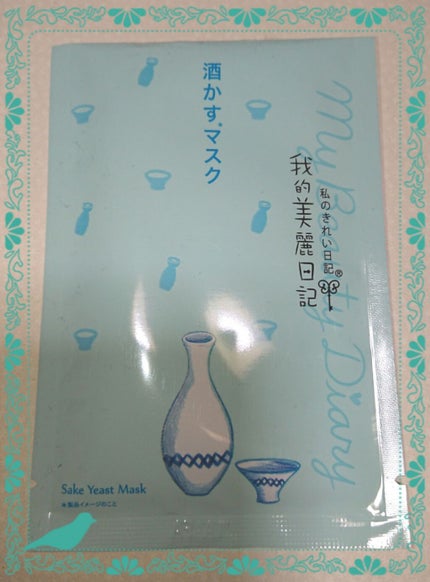 酒かす*マスク
My Beauty Diary
我的美麗日記
私のきれい日記®
Sake Yeast Mask
*製品イメージのこと